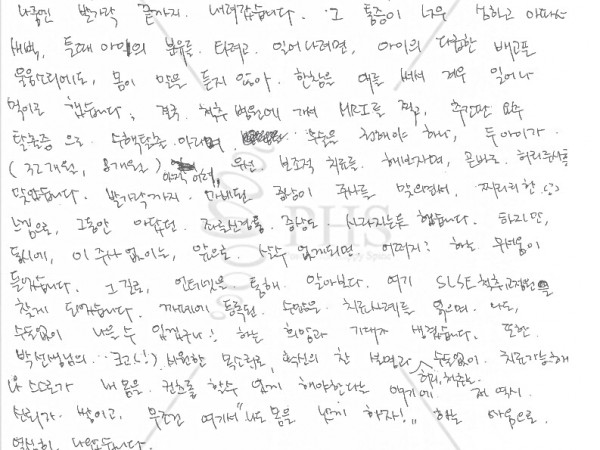 나중엔 발가락 끝까지. 내려갔습니다. 그 통증이 너무 심하고 아파서
새벽, 둘째 아이의 분유를 타려고. 일어나려면, 아이의 다급한 배고픔
울음소리에도, 몸이 말을 듣지 않아. 한참을 애를 써서 겨우 일어나
먹이곤 했습니다. 결국. 척추 병원에 가서 MRI를 찍고, 추간판
탈출증 으로 수술을 해야 하나, 두 아이가.
(32개월, 8개월) 아직 어려, 우선. 보조적 치료를. 해보자며, 곧바로. 허리주사를
맞았습니다. 발가락까지. 마비된 증상이 주사를 맞으면서, 찌릿찌릿한
느낌으로, 그동안 아팠던. 좌골신경통. 증상도. 사라지는듯 했습니다. 하지만,
동시에, 이 주사 없이는, 앞으로. 살수 없게되면. 어쩌지? 하는 무서움이
들었습니다. 그 길로, 인터넷을 통해. 알아보다. 여기 SLSE 척추교정원을
찾게 되었습니다. 까페에 등록된. 수많은. 치료사례를 읽으며. 나도,
수술없이 나을 수 있겠구나! 하는 희망과 기대가 생겼습니다. 또한.
박선생님의. 크고(!) 시원한 목소리로, 확신의 찬 설명과 수술없이. 치료가능하며
나 스스로가 내 몸을. 컨트롤 할수 있게 해야한다는 얘기에. 저 역시.
신뢰가. 쌓이고, 무조건 여기서 "나도 몸을 낫게 하자!" 하는 마음으로.
열심히. 나왔습니다.
PHS